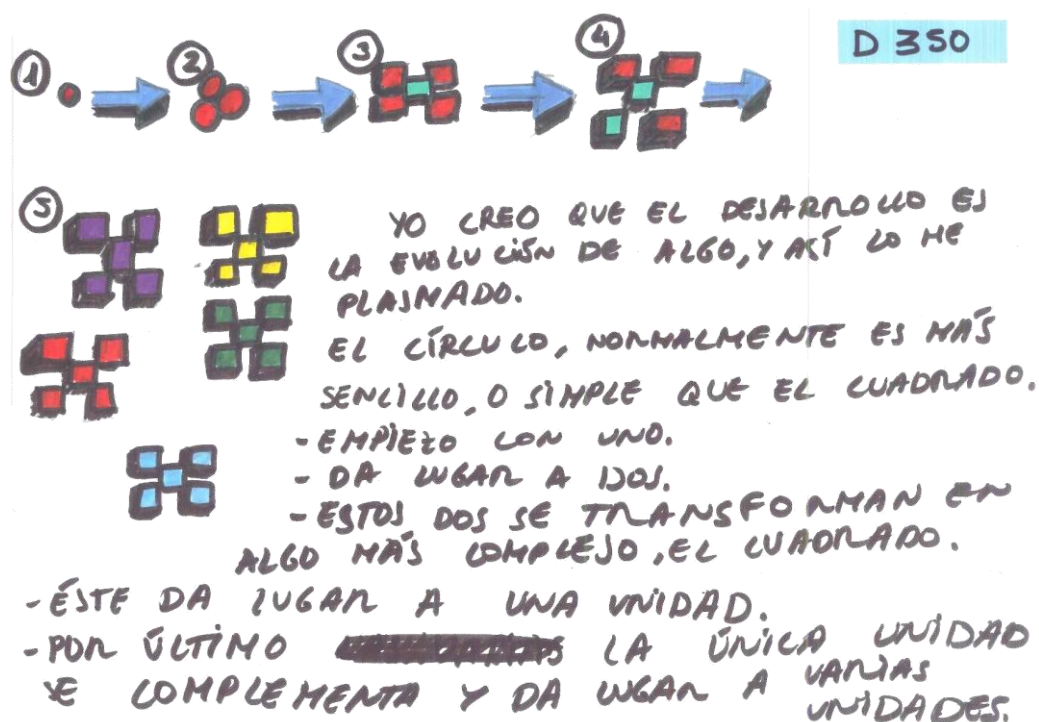 1 2 3 4 D 350
5
YO CREO QUE EL DESARROLLO ES
LA EVOLUCIÓN DE ALGO, Y ASÍ LO HE
PLASMADO.
EL CÍRCULO, NORMALMENTE ES MÁS
SENCILLO, O SIMPLE QUE EL CUADRADO.
- EMPIEZO CON UNO.
- DA LUGAR A DOS.
- ESTOS DOS SE TRANSFORMAN EN
ALGO MÁS COMPLEJO, EL CUADRADO.
- ÉSTE DA LUGAR A UNA UNIDAD.
- POR ÚLTIMO LA ÚNICA UNIDAD
SE COMPLEMENTA Y DA LUGAR A VARIAS
UNIDADES.